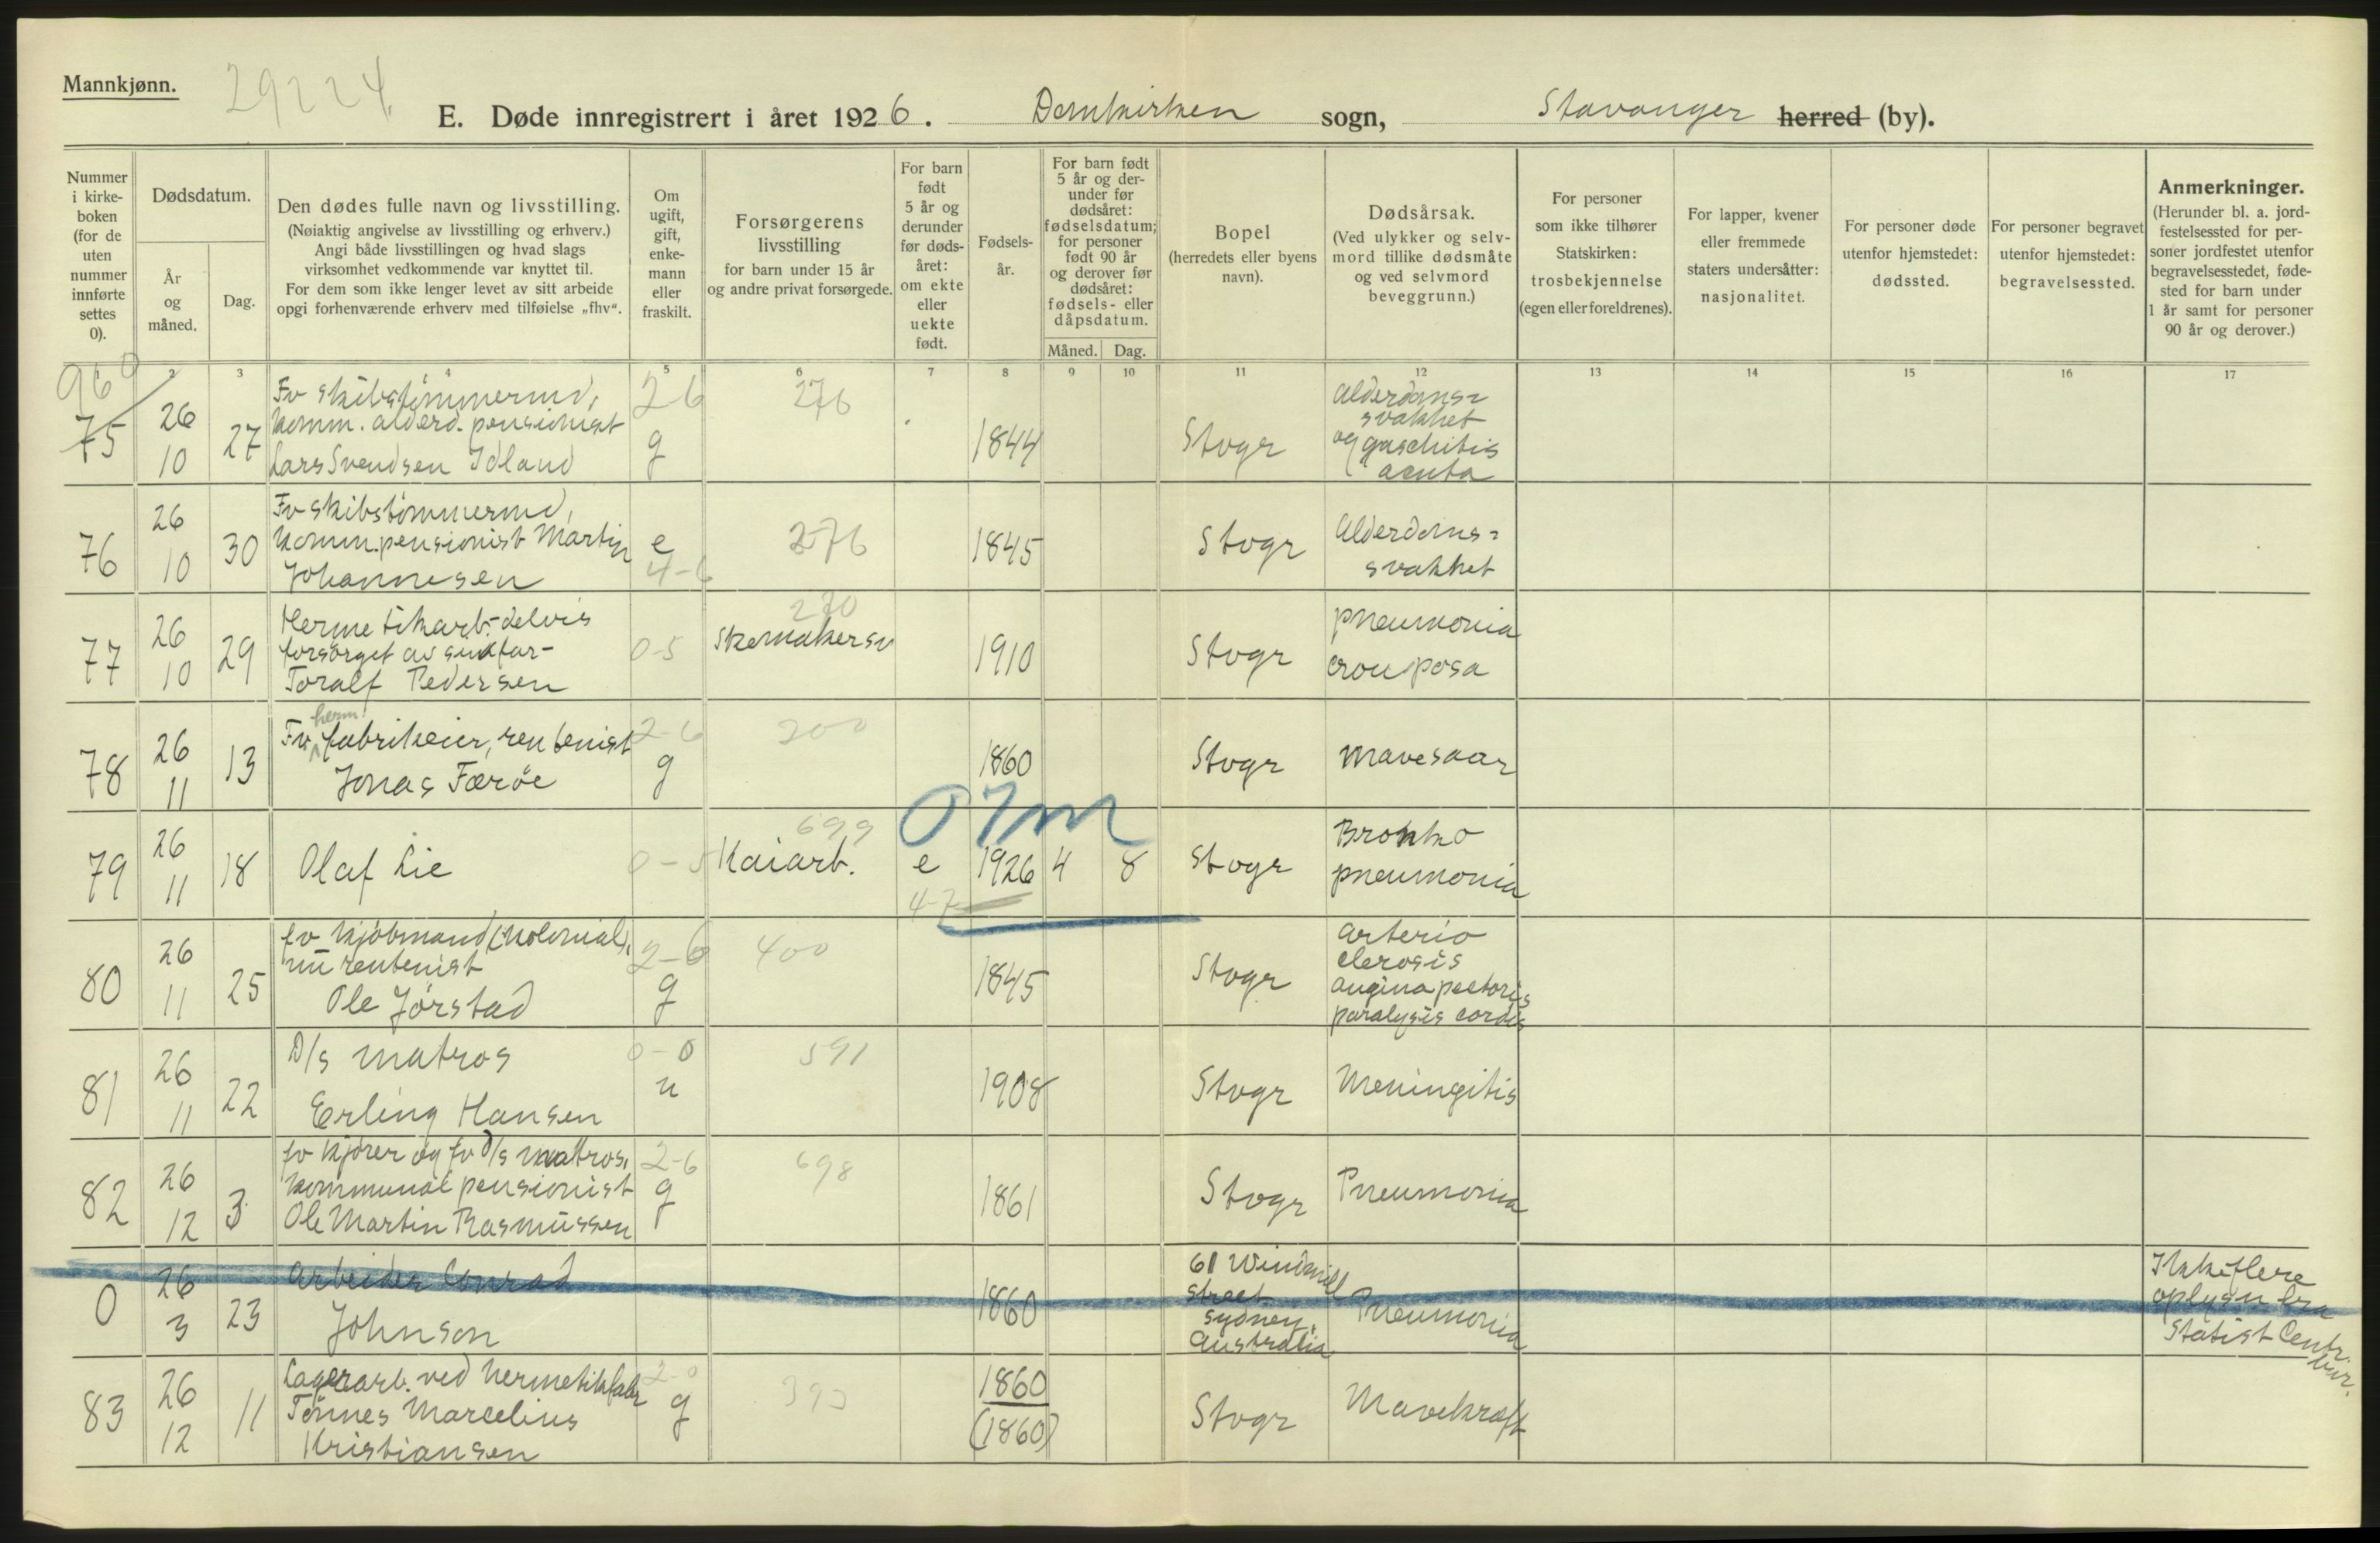 Mannkjønn.
29224.
E. Døde innregistrert i året 1926. Domkirken sogn, Stavanger herred (by).
Nummer i kirke-boken (for de uten nummer innførte settes 0).
Dødsdatum.
År og måned.
Dag.
Den dødes fulle navn og livsstilling.
(Nøiaktig angivelse av livsstilling og erhverv.)
Angi både livsstillingen og hvad slags
virksomhet vedkommende var knyttet til.
For dem som ikke lenger levet av sitt arbeide
opgi forhenværende erhverv med tilføielse „fhv“.
Om ugift, gift, enke-mann eller fraskilt.
Forsørgerens livsstilling
for barn under 15 år
og andre privat forsørgede.
For barn født 5 år og derunder før døds-året: om ekte eller uekte født.
Fødsels-år.
For barn født 5 år og der-under før dødsåret: fødselsdatum; for personer født 90 år og derover før dødsåret: fødsels- eller dåpsdatum.
Måned. Dag.
Bopel
(herredets eller byens navn).
Dødsårsak.
(Ved ulykker og selv-mord tillike dødsmåte og ved selvmord beveggrunn.)
For personer som ikke tilhører Statskirken: trosbekjennelse (egen eller foreldrenes).
For lapper, kvener eller fremmede staters undersåtter: nasjonalitet.
For personer døde utenfor hjemstedet: dødssted.
For personer begravet utenfor hjemstedet: begravelsessted.
Anmerkninger.
(Herunder bl. a. jord-festelsessted for per-soner jordfestet utenfor begravelsesstedet, føde-sted for barn under 1 år samt for personer 90 år og derover.)
2 3 4 5 6 7 8 9 10 11 12 13 14 15 16 17
960
75 26 10 27
Fv skibstømmermd,
komm. alderd. pensionist
Lars Svendsen Idland
2-6 g 276 1844 Stvgr
Alderdoms=
svakhet
og
acuta
76 26 10 30
Fv skibstømmermd,
komm. pensionist Martin
Johannesen
e 4-6 276 1845 Stvgr
Alderdoms=
svakhet
77 26 10 29
Hermetikarb.- delvis
forsørget av sin far-
Toralf Pedersen
0-5 270 Skomakersv 1910 Stvgr
pneumonia
crouposa
78 26 11 13
herm.
Fv. fabrikeier, rentenist
Jonas Færøe
2-6 g 200 1860 Stvgr Mavesaar
07m
79 26 11 18 Olaf Lie 0-5 699 Kaiarb. e 4-7 1926 4 8 Stvgr
Bronko
pneumonia
80 26 11 25
fv kjøbmand (kolonial),
nu rentenist
Ole Jørstad
2-6 g 400 1845 Stvgr
Arterio
clerosis
angina pectoris
paralysis cordis
81 26 11 22
D/s matros
Erling Hansen
0-0 u 591 1908 Stvgr Meningitis
82 26 12 3
fv kjører og fv D/s matros,
kommunal pensionist
Ole Martin Rasmussen
2-6 g 698 1861 Stvgr Pneumonia
0 26 3 23
Arbeider Conrad
Johnson
1860
61 Windmill
Street
Sydney,
Australia
Pneumonia
Ikke flere
oplysn fra
Statist Centr.
bur.
83 26 12 11
Lagerarb. ved hermetikfabr
Tønnes Marcelius
Kristiansen
2-0 g 1860
(1860)
Stvgr Mavekræft